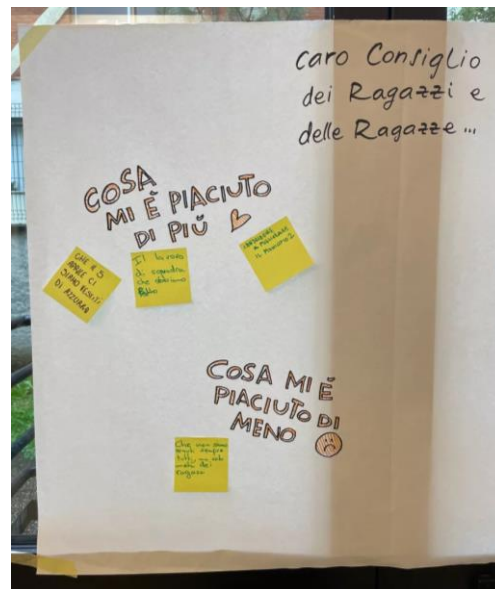 caro Consiglio
dei Ragazzi e
delle Ragazze...
COSA
MI È PIACIUTO
DI PIÙ
CHE IL 5
APRILE CI
SIAMO VESTITI
DI AZZURRO
Il lavoro
di squadra
che abbiamo
fatto
IL
COSA MI È
PIACIUTO DI
MENO
Che non sono
venuti sempre
tutti, ma solo
metà dei
ragazzi